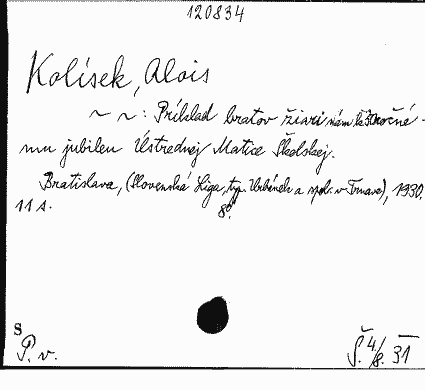 120834
Kolísek, Alois
~ ~ : Príklad bratov žiari nám k storočné-
mu jubileu Ústrednej Matice Školskej.
Bratislava, (Slovenská Liga, typ. Urbánek a spol. v Trnave), 1930.
11 s. 8°.
S
P. v. Š. 4/8. 31